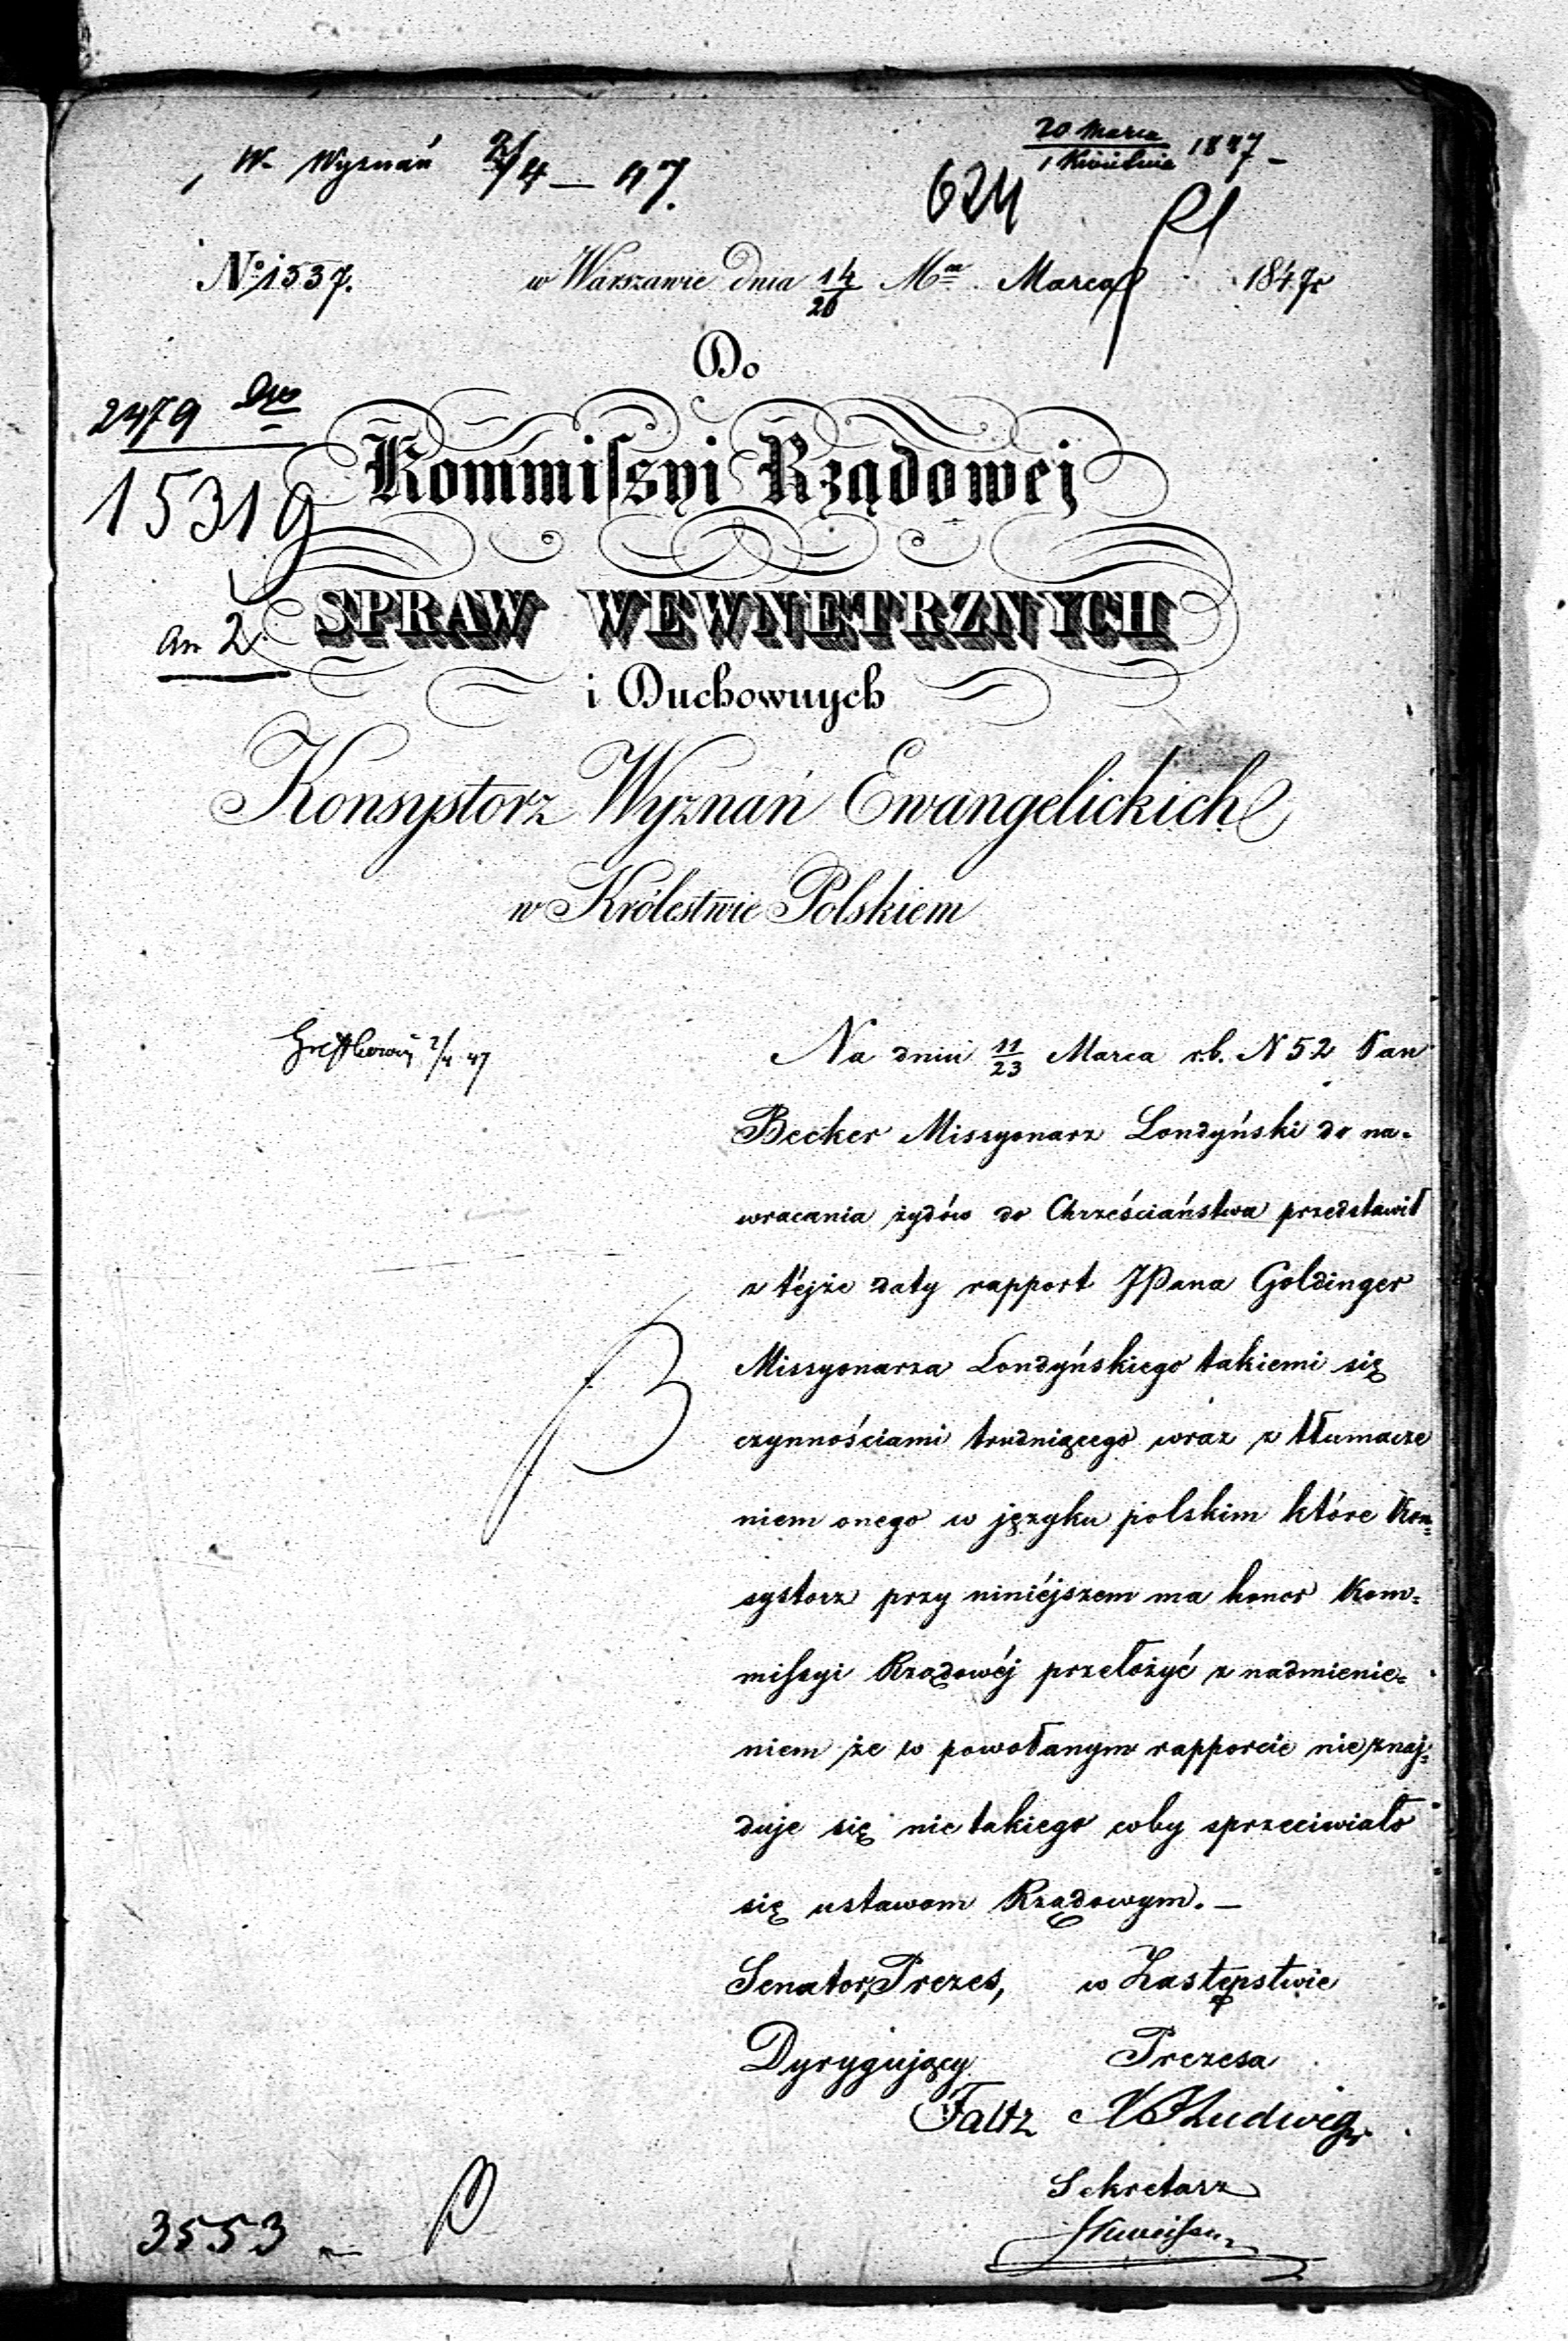 W. Wyznań 2/4 — 47.
20 Marca
1 Kwietnia 1847 —
624
№ 1537. w Warszawie dnia 14/26 Mca Marca 1847r
Do
2479
Kommiſsyi Rządowej
15319
SPRAW WEWNETRZNYCH
an 2
i Duchownych
Konsystorz Wyznań Ewangelickich
w Królestwie Polskiem
2/4 47
Na dniu 11/23 Marca r.b. N 52 Pan
Becker Missyonarz Londyński do na-
wracania żydów do Chrześciaństwa przedstawił
z téjże daty rapport JPana Goldinger
Missyonarza Londyńskiego takiemi się
czynnościami trudniącego wraz z tłumacze
niem onego w języku polskim które Kon=
systorz przy niniéjszem ma honor Kom=
miſsyi Rządowéj przełożyć z nadmienie=
niem że w powołanym rapporcie nie znaj=
duje się nic takiego coby sprzeciwiało
się ustawom Rządowym. —
Senator, Prezes, w Zastępstwie
Dyrygujący Prezesa
Faltz Ludwig
Sekretarz
3553